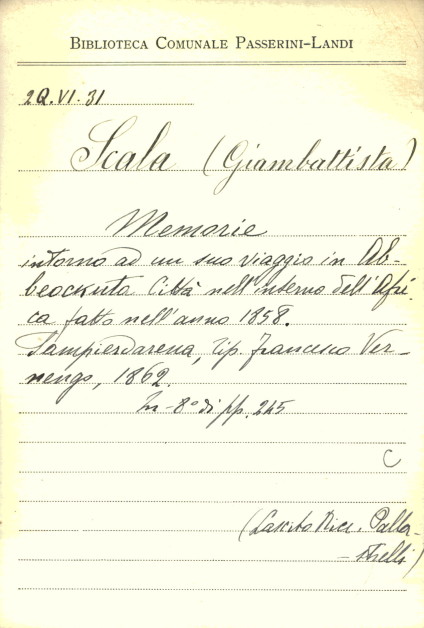 BIBLIOTECA COMUNALE PASSERINI-LANDI
2Q.VI.31
Scala (Giambattista)
Memorie
intorno ad un suo viaggio in Ab-
beockuta Città nell'interno dell'Afri-
ca fatto nell'anno 1858.
Sampierdarena, Tip. Francesco Ver-
nengo, 1862.
In-8° di pp. 245
C
(Lascito Picc. Palla-
-strelli)